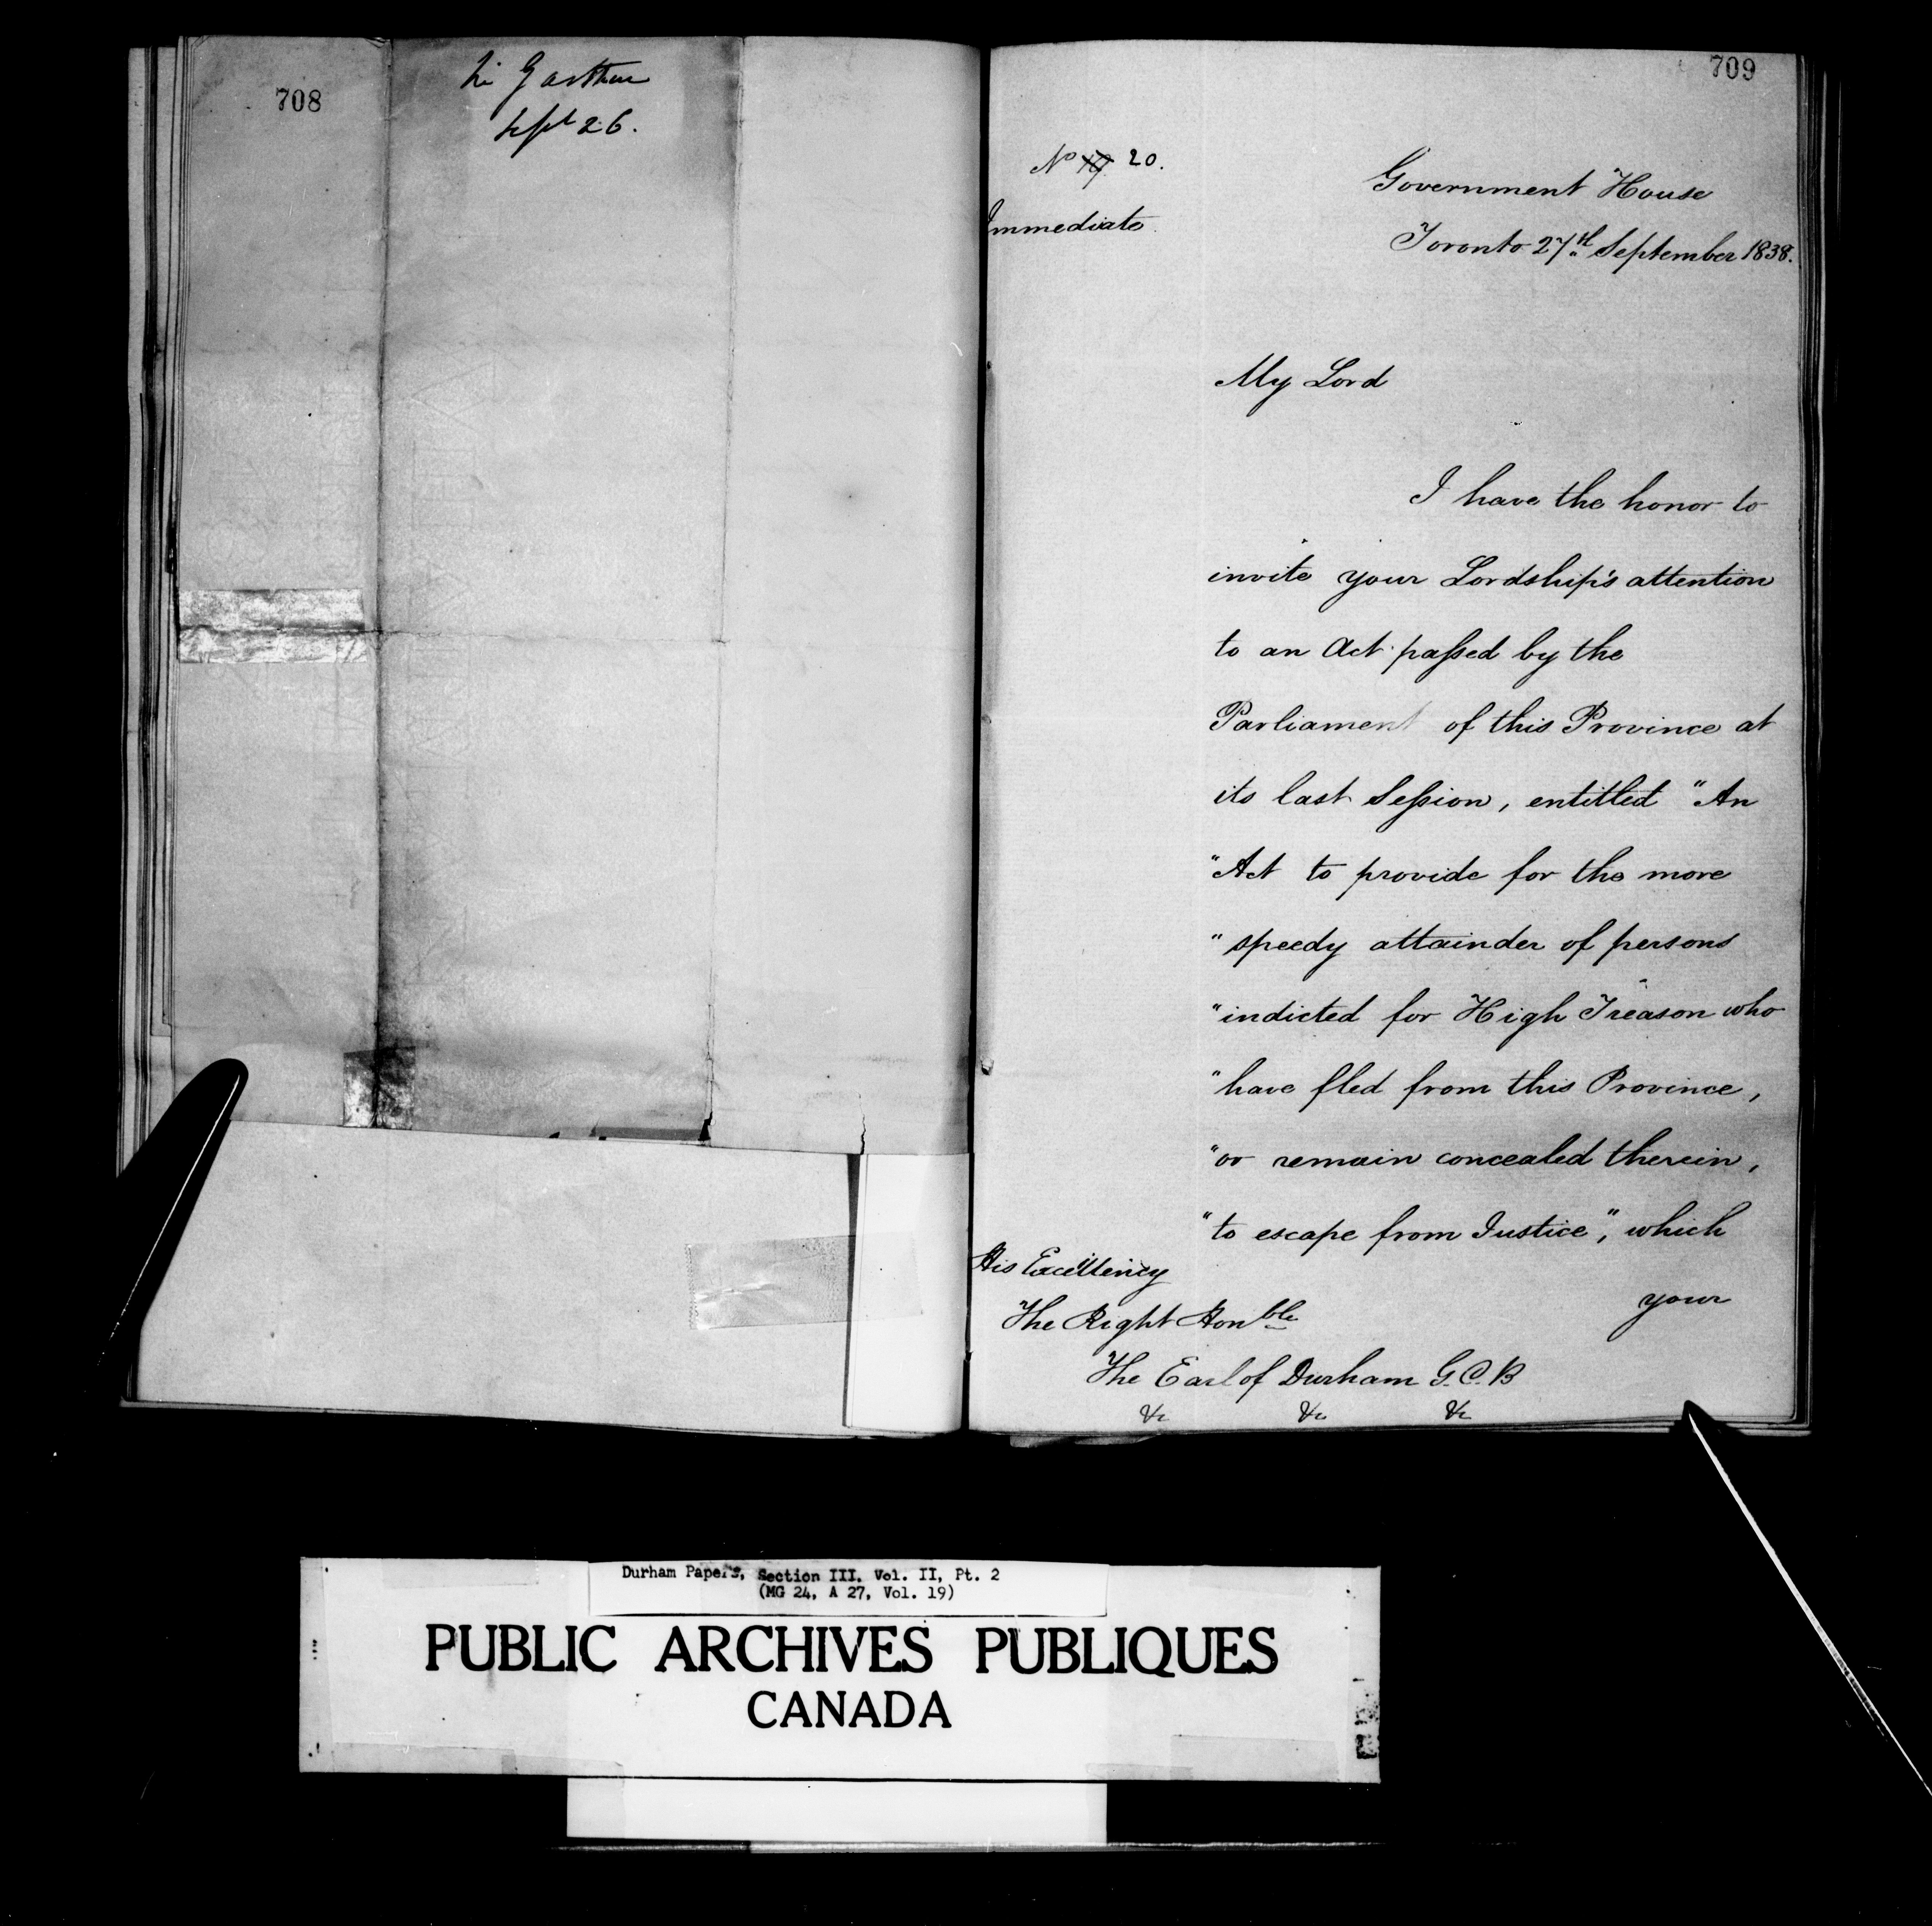 708
Sir G Arthur
Sept 26.
709
No 19 20.
Immediate
Government House
Toronto 27th September 1838.
My Lord
I have the honor to
invite your Lordship's attention
to an Act passed by the
Parliament of this Province at
its last Session, entitled "An
"Act to provide for the more
"speedy attainder of persons
"indicted for High Treason who
"have fled from this Province,
"or remain concealed therein,
"to escape from Justice", which
your
His Excellency
The Right Honble
The Earl of Durham G.C.B
&c &c &c
Durham Papers, Section III. Vol. II, Pt. 2
(MG 24, A 27, Vol. 19)
PUBLIC ARCHIVES PUBLIQUES
CANADA